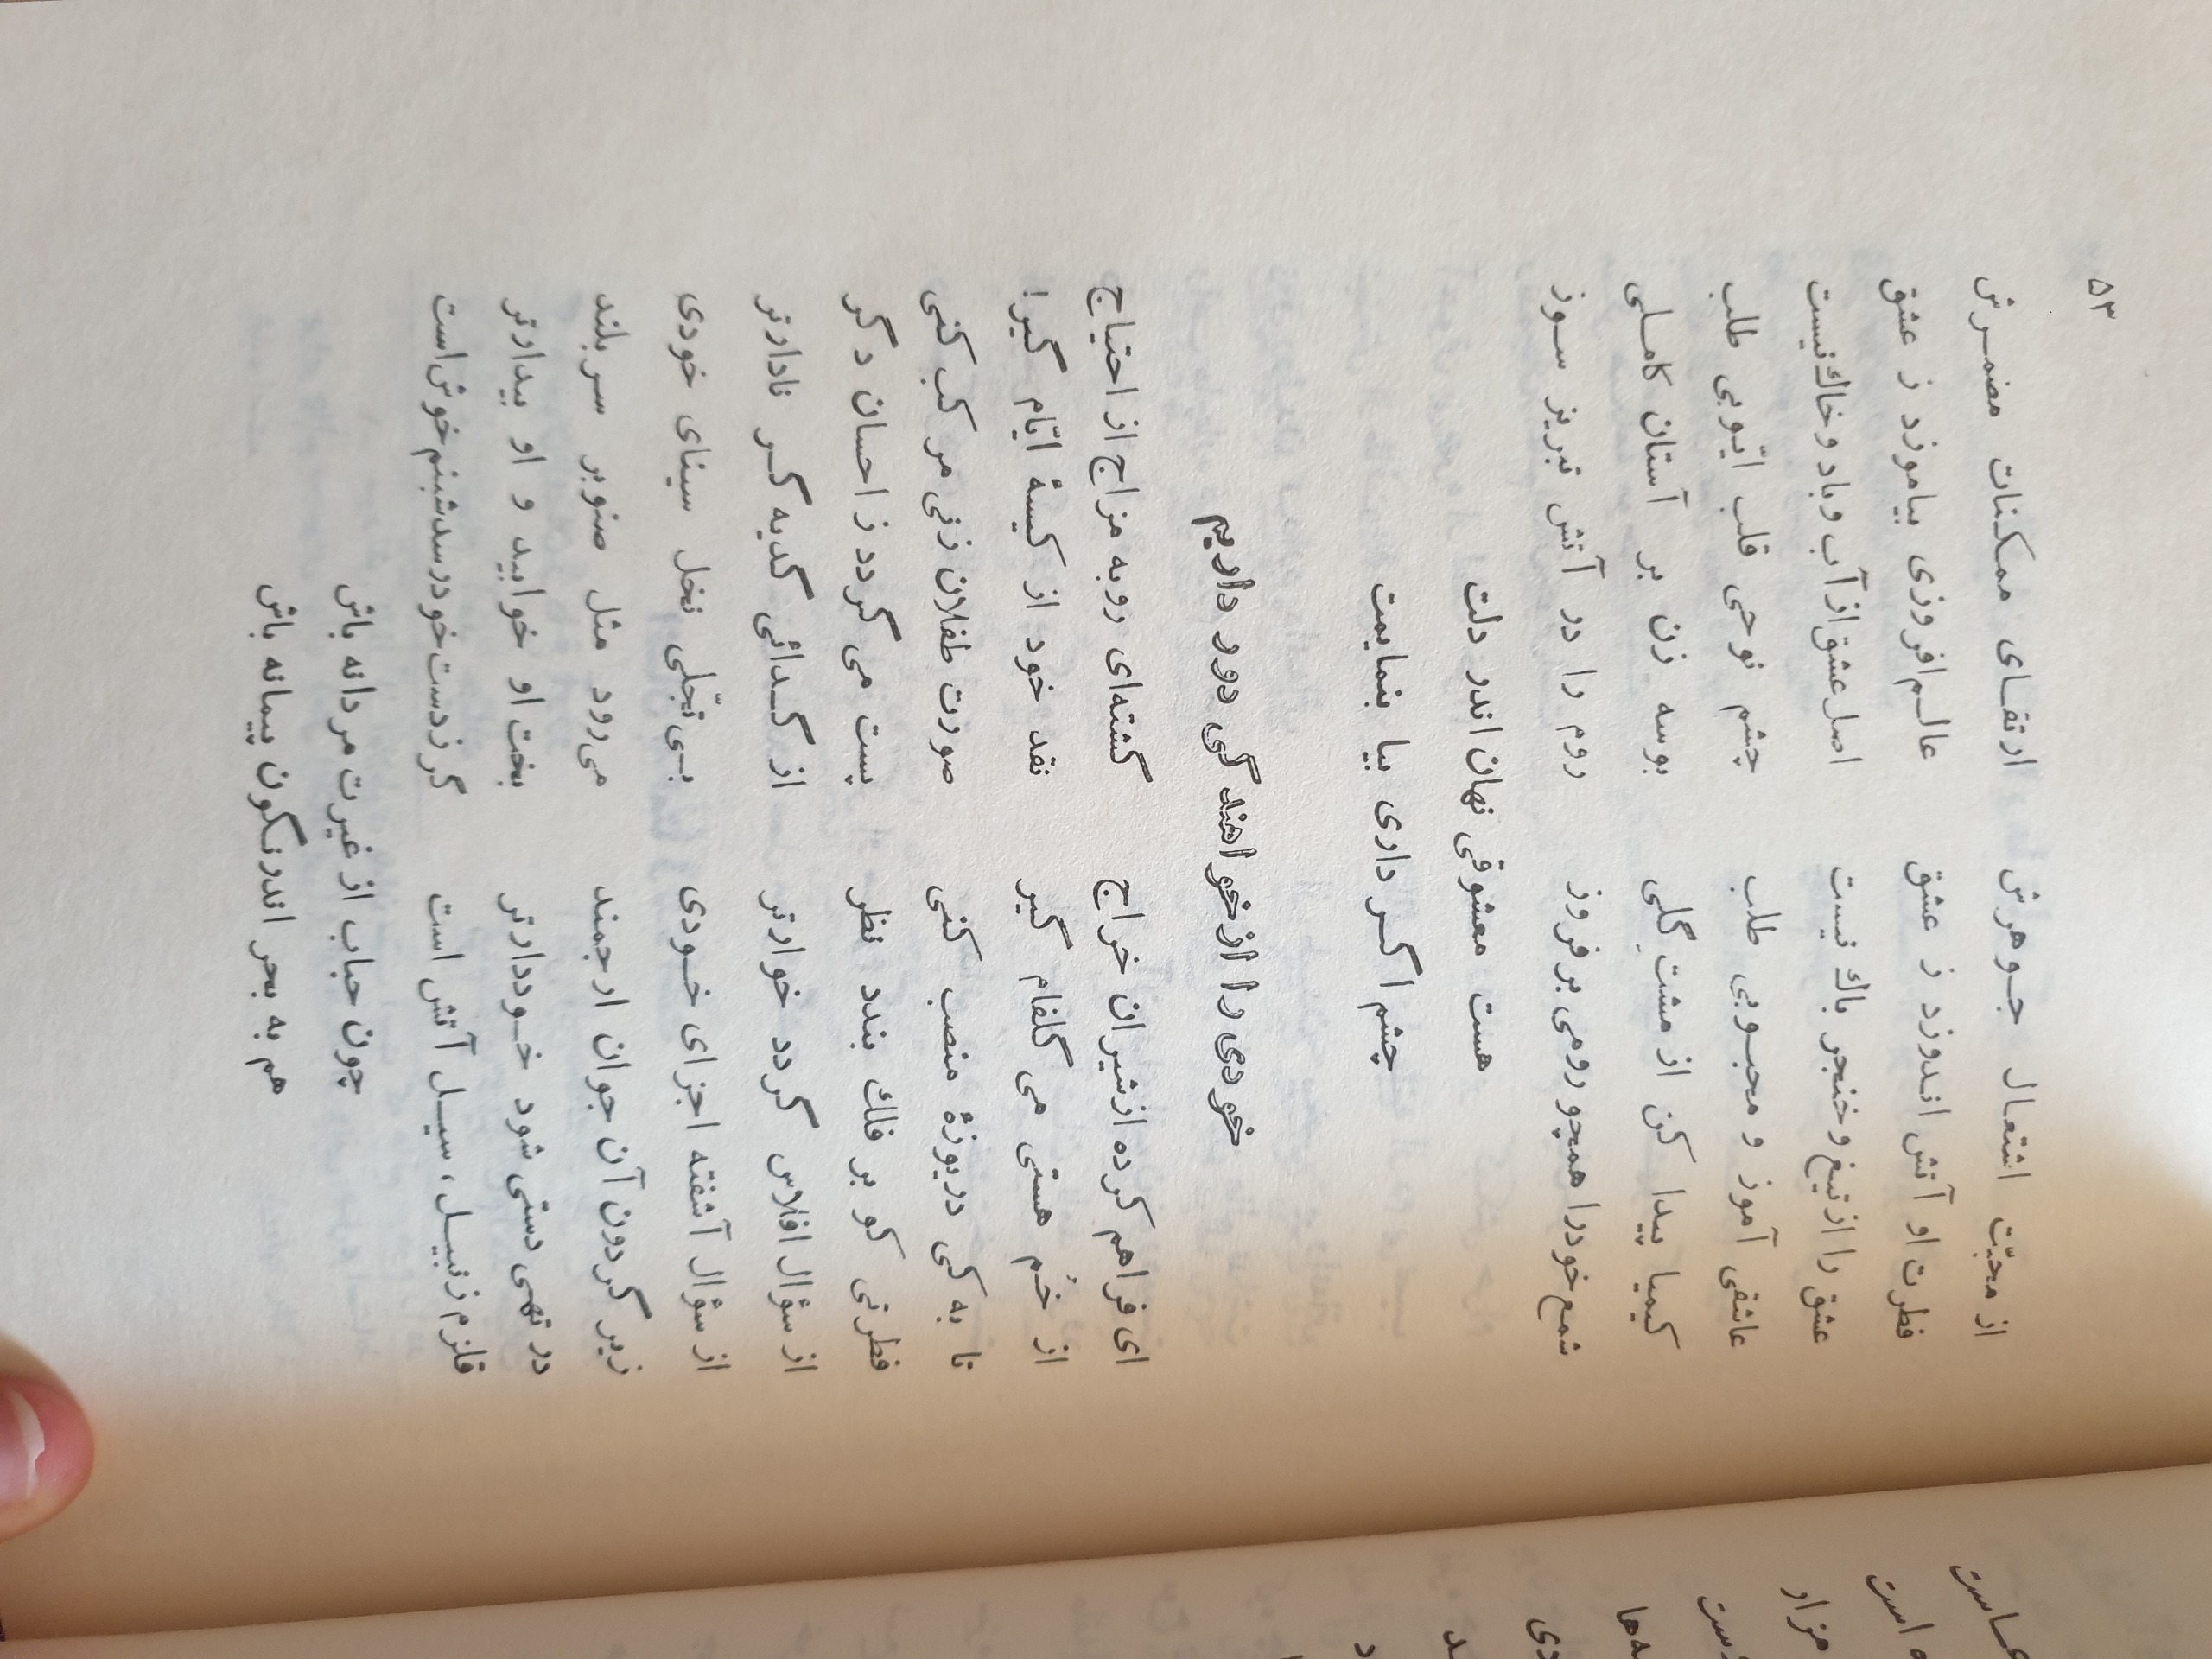 ۵۳
از محبّت اشتعال جوهرش ارتقای ممکنات مضمرش
فطرت او آتش اندوزد ز عشق عالم‌افروزی بیاموزد ز عشق
عشق را از تیغ و خنجر باك نیست اصل عشق از آب و باد و خاك نیست
عاشقی آموز و محبوبی طلب چشم نوحی قلب ایّوبی طلب
کیمیا پیدا کن از مشت گِلی بوسه زن بر آستان کاملی
شمع خود را همچو رومی بر فروز روم را در آتش تبریز سوز
هست معشوقی نهان اندر دلت
چشم اگر داری بیا بنمایمت
خودی را از خواهندگی دور داریم
ای فراهم کرده از شیران خراج گشته‌ای روبه مزاج از احتیاج
از خُم هستی می گلفام گیر نقد خود از کیسۀ ایّام گیر!
تا به کی دریوزۀ منصب کنی صورت طفلان ز نی مرکب کنی
فطرتی کو بر فلك بندد نظر پست می گردد ز احسان دگر
از سؤال افلاس گردد خوارتر از گدائی گدیه گر نادارتر
از سؤال آشفته اجزای خودی بی تجّلی نخل سینای خودی
زیر گردون آن جوان ارجمند می‌رود مثل صنوبر سربلند
در تهی دستی شود خوددارتر بخت او خوابید و او بیدارتر
قلزم زنبیل، سیل آتش است گر ز دست خود رسد شبنم خوش است
چون حباب از غیرت مردانه باش
هم به بحر اندر نگون پیمانه باش